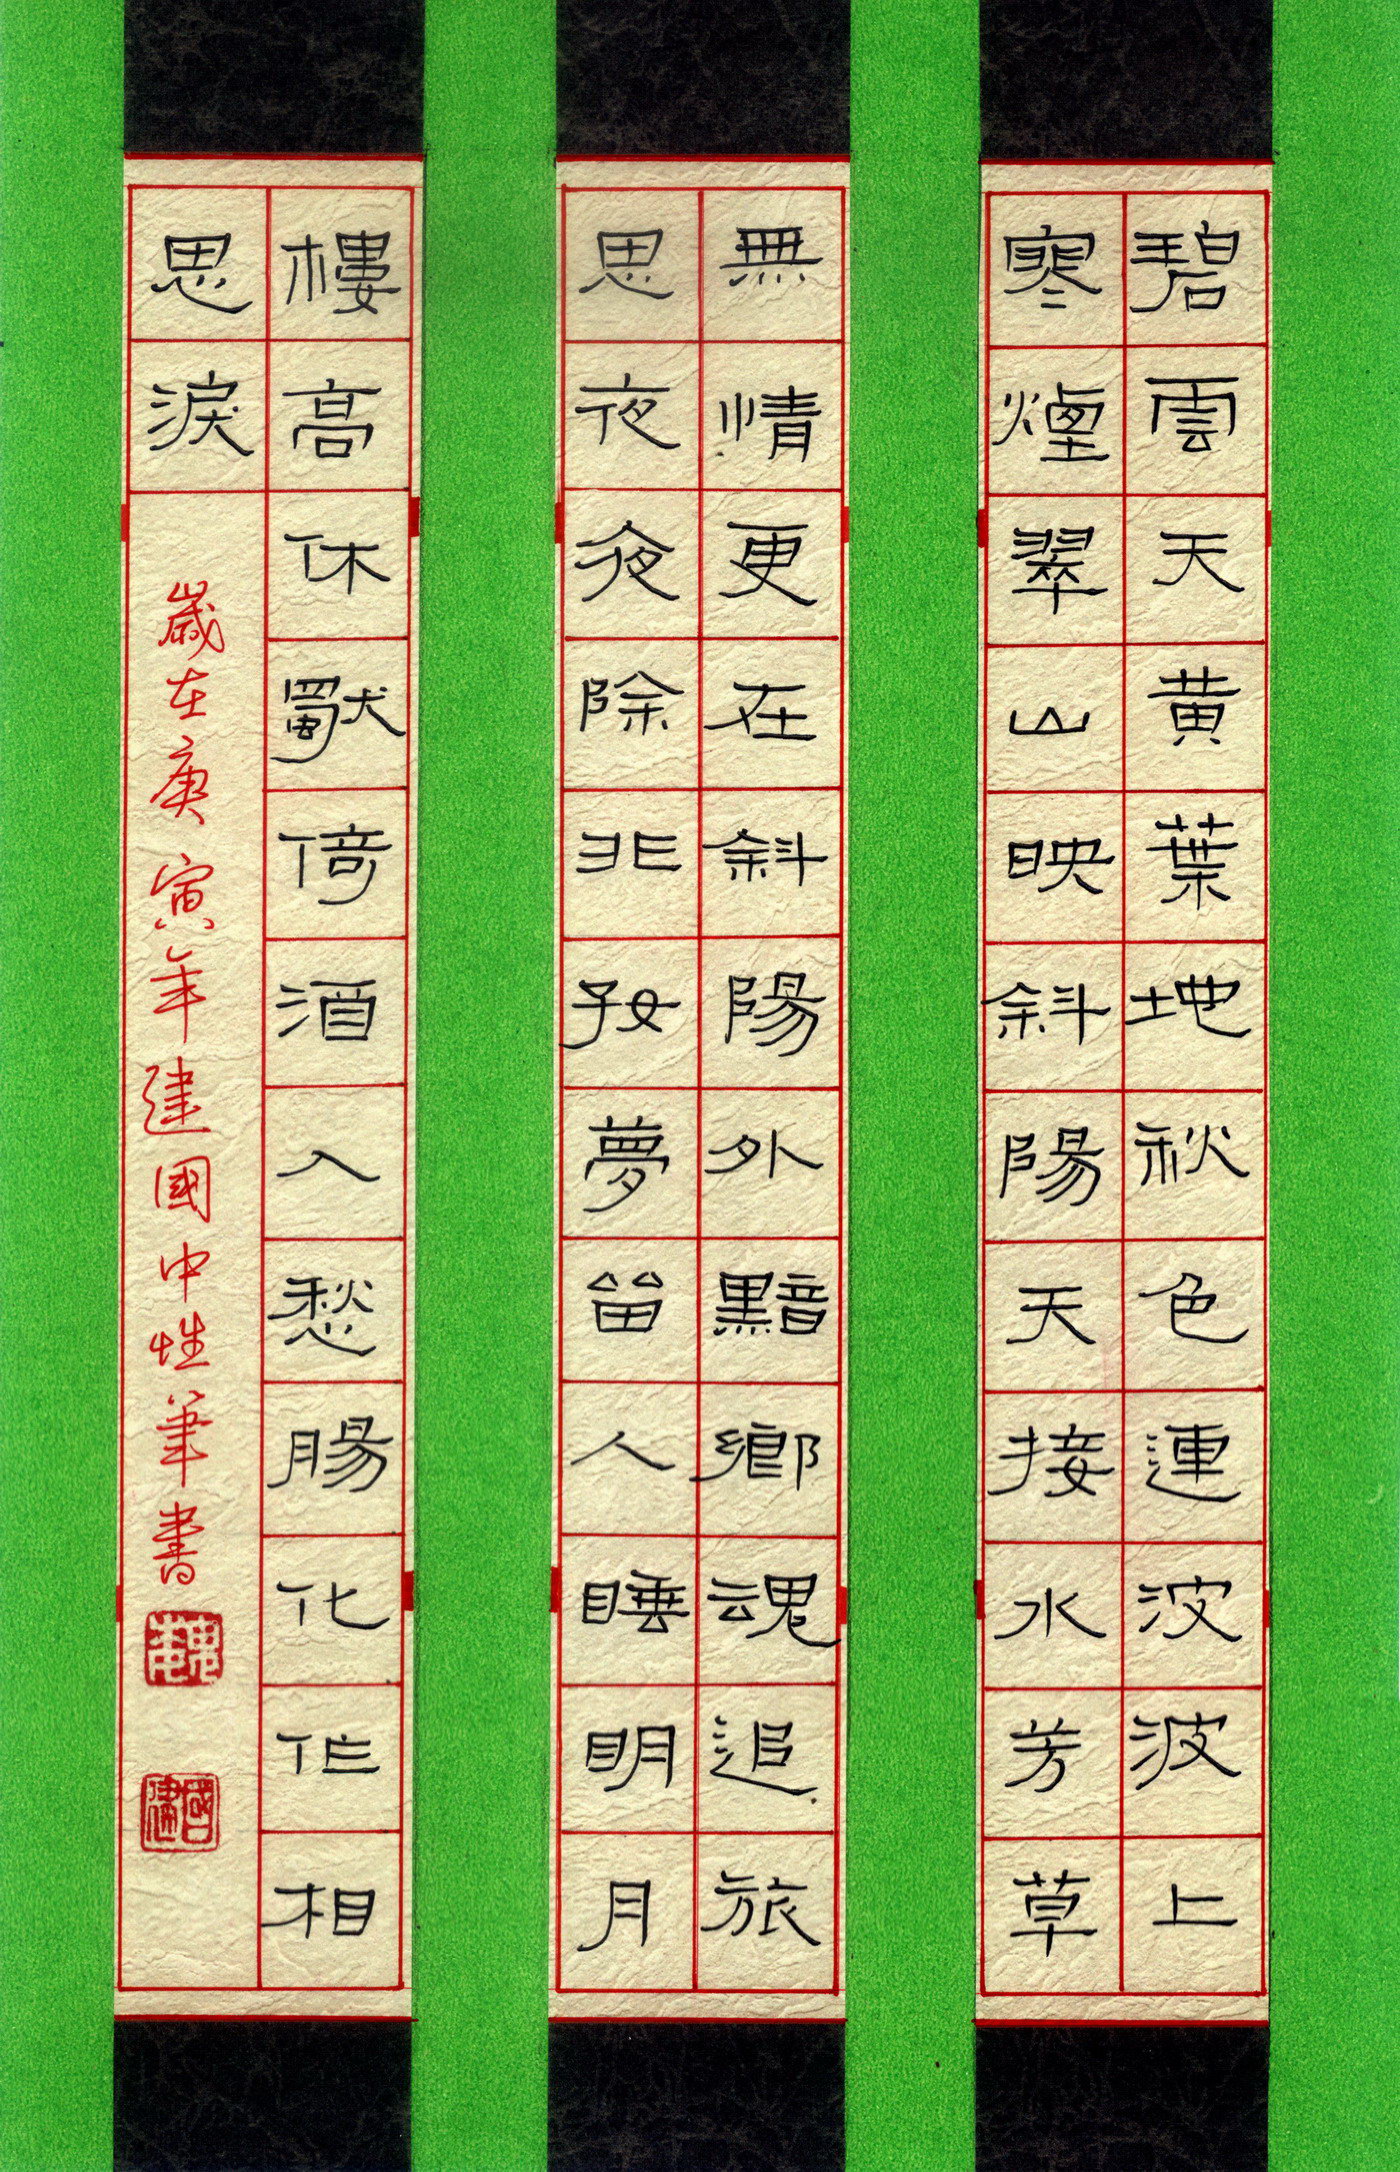 碧雲天黄葉地秋色連波波上
寒煙翠山映斜陽天接水芳草
無情更在斜陽外黯鄉魂追旅
思夜夜除非好夢畱人睡明月
樓高休獨倚酒入愁腸化作相
思淚
歲在庚寅年建國中性筆書